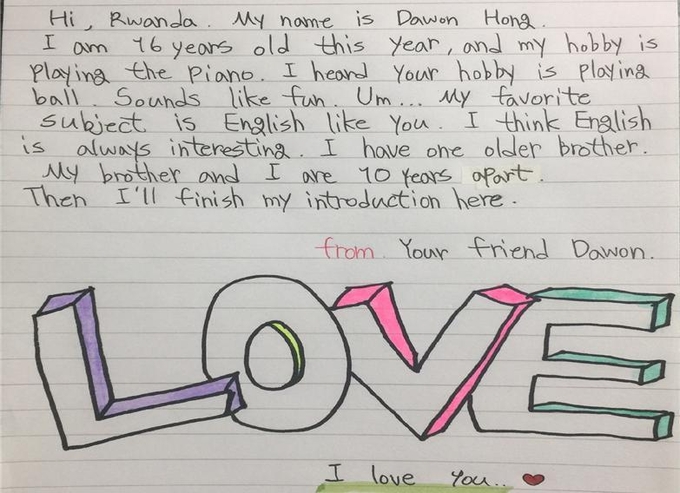 Hi, Rwanda. My name is Dawon Hong.
I am 16 years old this year, and my hobby is
playing the piano. I heard your hobby is playing
ball. Sounds like fun. Um... My favorite
subject is English like you. I think English
is always interesting. I have one older brother.
My brother and I are 10 years apart.
Then I'll finish my introduction here.
from. Your friend Dawon.
LOVE
I love you.. ❤